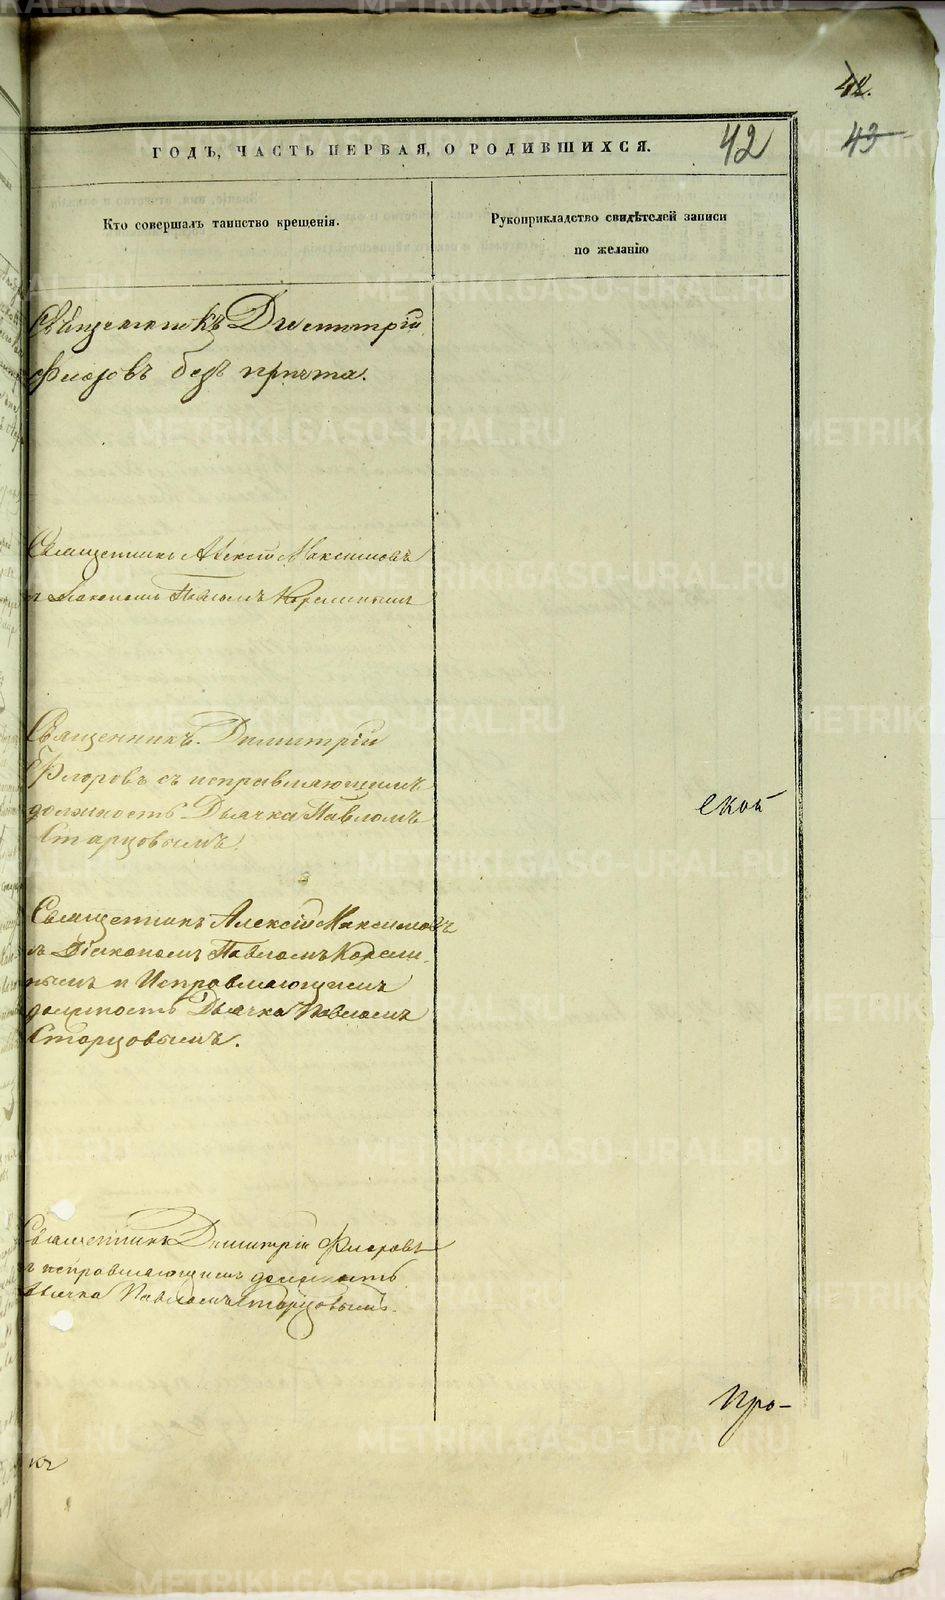 42.
43
ГОДЪ, ЧАСТЬ ПЕРВАЯ, О РОДИВШИХСЯ.
42
Кто совершалъ таинство крещенія.
Рукоприкладство свидѣтелей записи
по желанію
Священникъ Димитрій
Флоровъ безъ причта.
Священникъ Алексій Максимовъ
съ Діакономъ Павломъ Кореминымъ
Священникъ Димитрій
Флоровъ съ исправляющимъ
должность Дьячка Павломъ
Старцовымъ.
ской
Священникъ Алексій Максимовъ
съ Діакономъ Павломъ Кореми-
нымъ и Исправляющимъ
должность Дьячка Павломъ
Старцовымъ.
Священникъ Димитрій Флоровъ
съ исправляющимъ должность
Дьячка Павломъ Старцовымъ.
Про-
METRIKI.GASO-URAL.RU